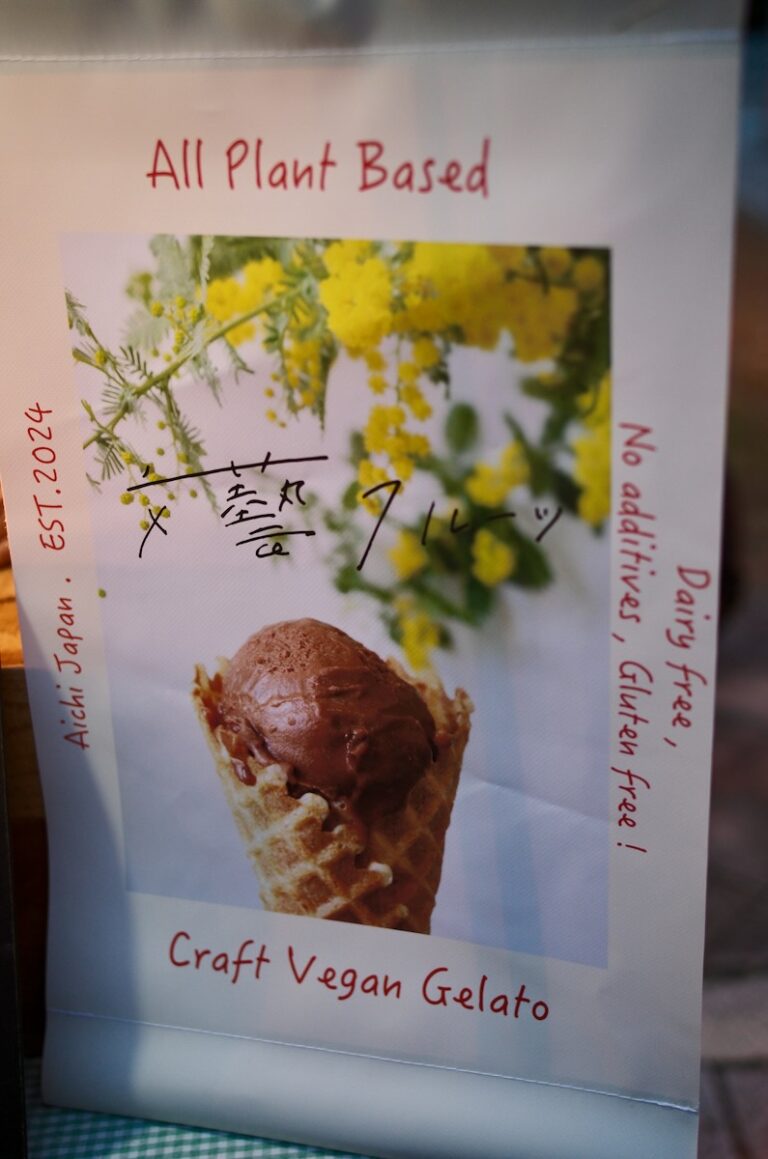 All Plant Based
Aichi Japan. EST.2024
文藝フルーツ
Dairy free,
No additives, Gluten free!
Craft Vegan Gelato